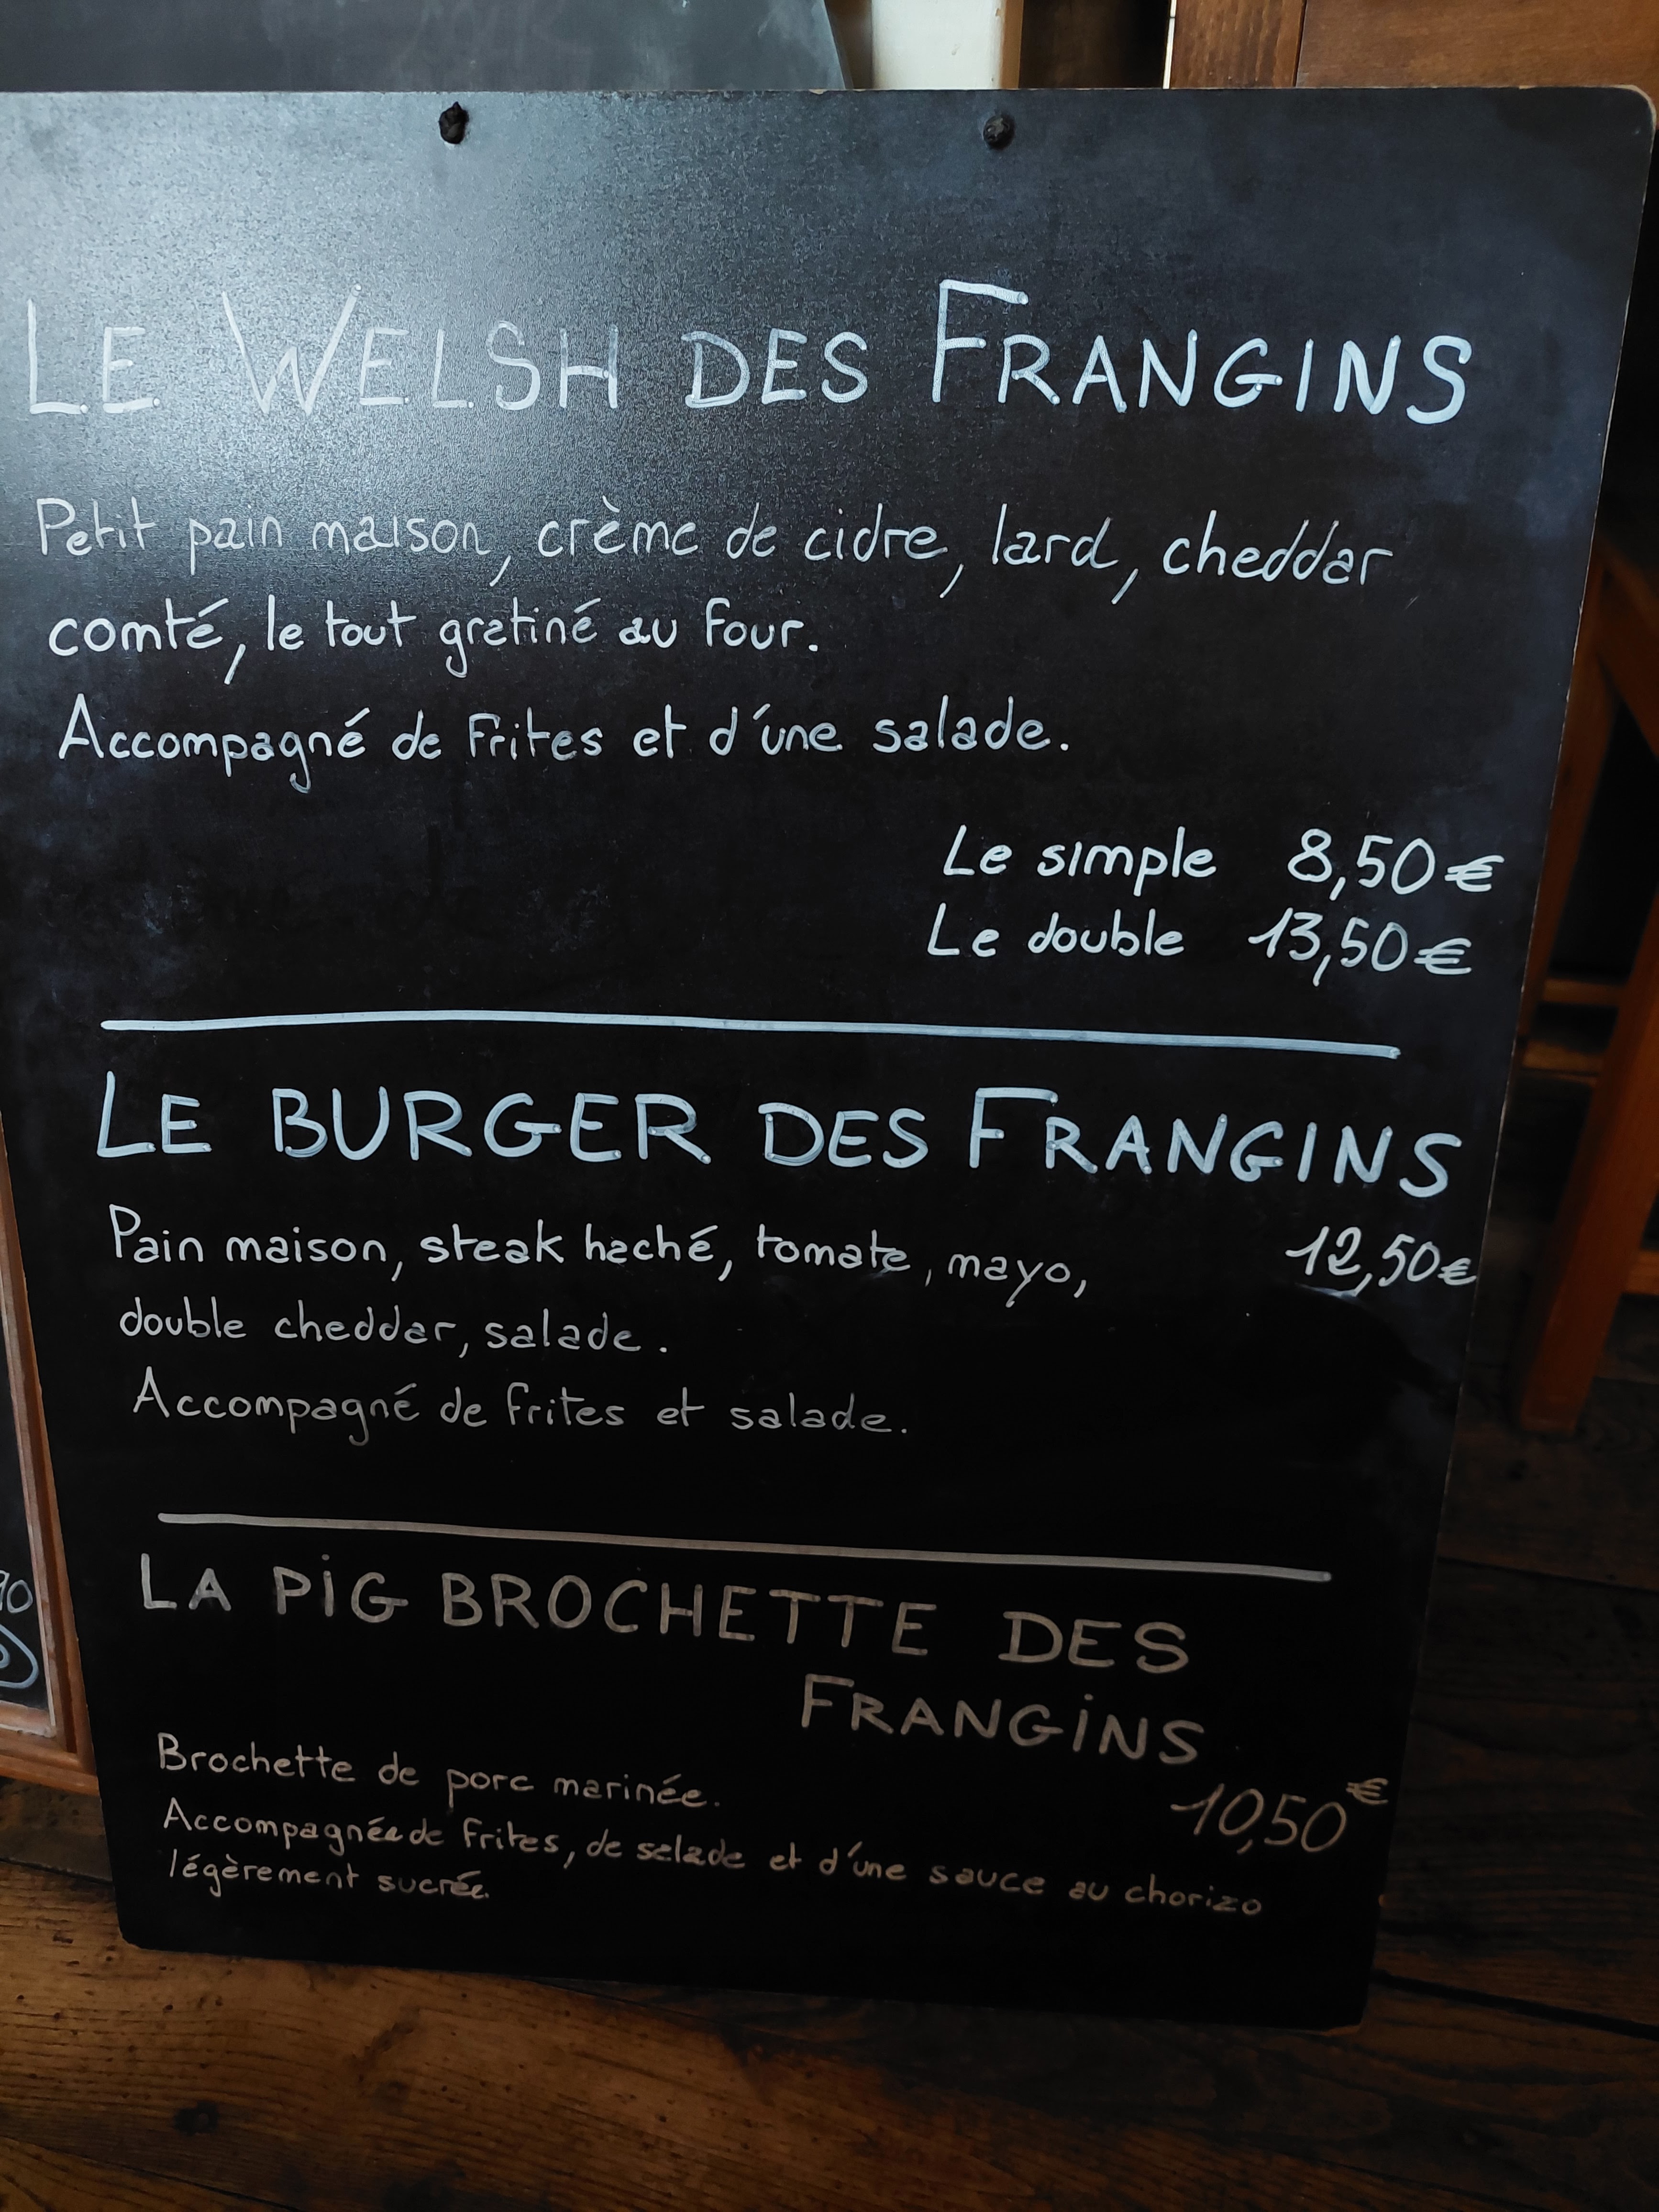 LE WELSH DES FRANGINS
Petit pain maison, crème de cidre, lard, cheddar
comté, le tout gratiné au four.
Accompagné de frites et d'une salade.
Le simple 8,50€
Le double 13,50€
LE BURGER DES FRANGINS
Pain maison, steak haché, tomate, mayo, 12,50€
double cheddar, salade.
Accompagné de frites et salade.
LA PIG BROCHETTE DES
FRANGINS
Brochette de porc marinée.
10,50€
Accompagnée de frites, de salade et d'une sauce au chorizo
légèrement sucrée.